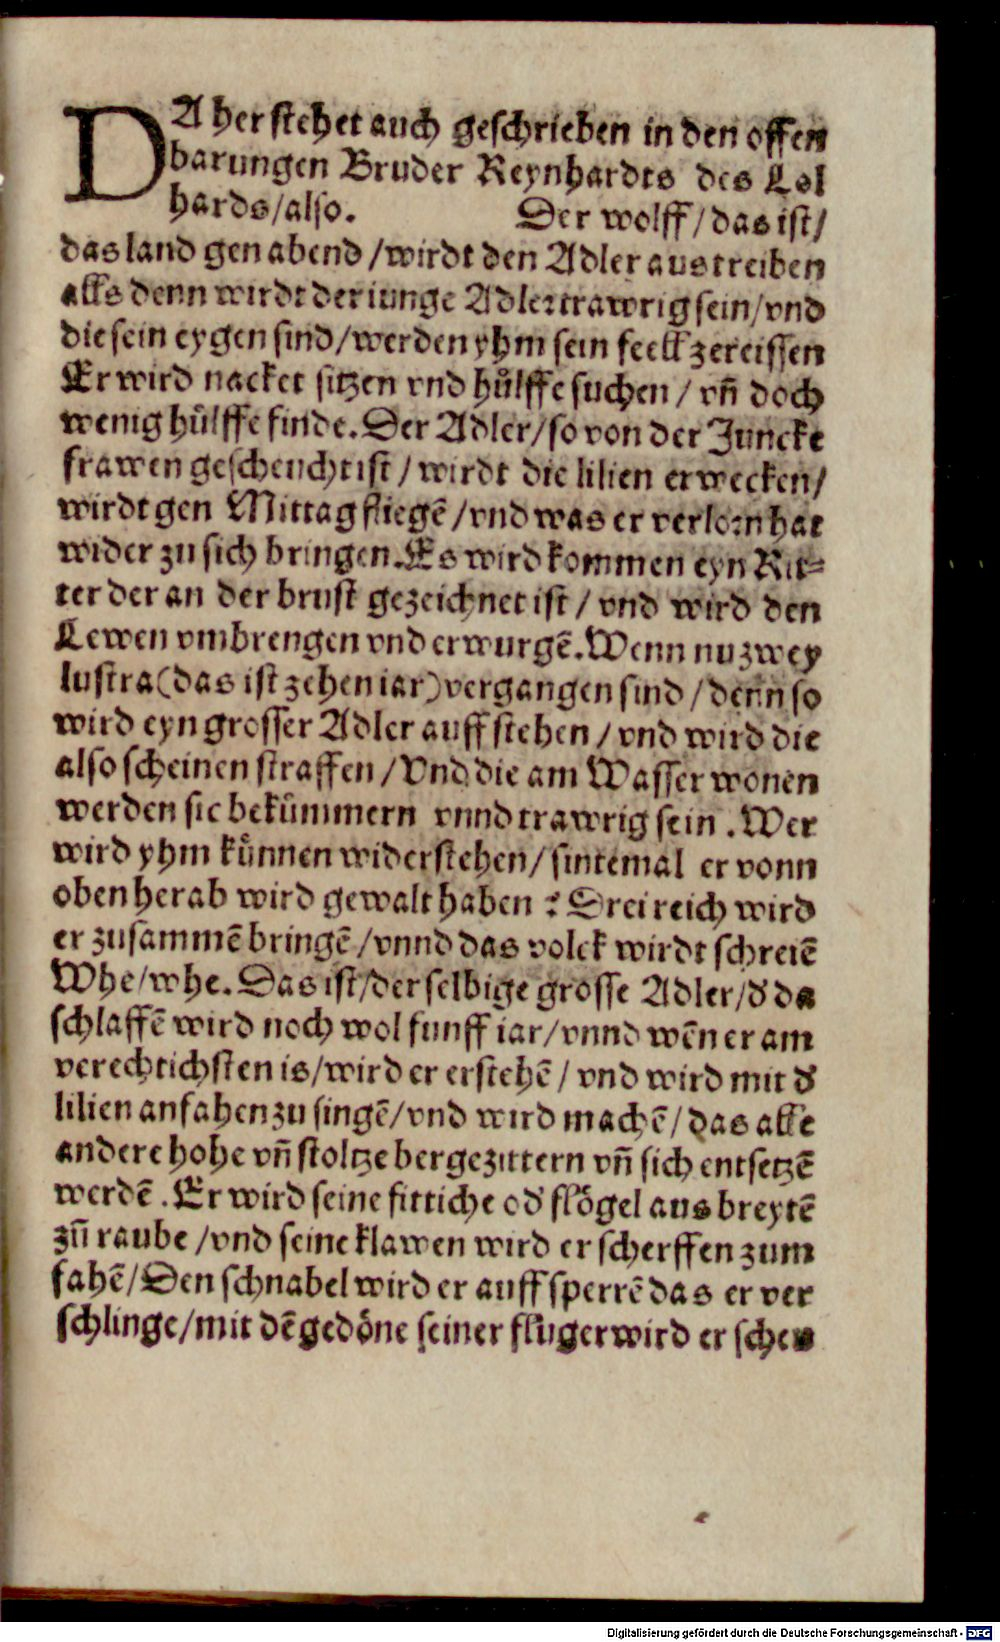 DA her stehet auch geschrieben in den offen
barungen Bruder Reynhardts des Lol
hards/also. Der wolff/das ist/
das land gen abend/wirdt den Adler austreiben
alls denn wirdt der iunge Adler trawrig sein/vnd
die sein eygen sind/werden yhm sein feell zereissen
Er wird nacket sitzen vnd hůlffe suchen/vn̄ doch
wenig hůlffe finde. Der Adler/so von der Juncke
frawen gescheucht ist/wirdt die lilien erwecken/
wirdt gen Mittag fliegē/vnd was er verlorn hat
wider zu sich bringen. Es wird kommen eyn Rit⸗
ter der an der brust gezeichnet ist/vnd wird den
Lewen vmbrengen vnd erwurgē. Wenn nu zwey
lustra (das ist zehen iar) vergangen sind/denn so
wird eyn grosser Adler auff stehen/vnd wird die
also scheinen straffen/Vnd die am Wasser wonen
werden sie bekůmmern vnnd trawrig sein. Wer
wird yhm kůnnen widerstehen/sintemal er vonn
oben herab wird gewalt haben? Drei reich wird
er zusammē bringē/vnnd das volck wirdt schreiē
Whe/whe. Das ist/der selbige grosse Adler/d̕ da
schlaffē wird noch wol funff iar/vnnd wēn er am
verechtichsten is/wird er erstehē/vnd wird mit d̕
lilien anfahen zu singē/vnd wird machē/das alle
andere hohe vn̄ stoltze berge zittern vn̄ sich entsetzē
werdē. Er wird seine fittiche od̕ flögel aus breytē
zū raube/vnd seine klawen wird er scherffen zum
fahē/Den schnabel wird er auff sperrē das er ver
schlinge/mit dē gedöne seiner fluger wird er scheu
Digitalisierung gefördert durch die Deutsche Forschungsgemeinschaft - DFG